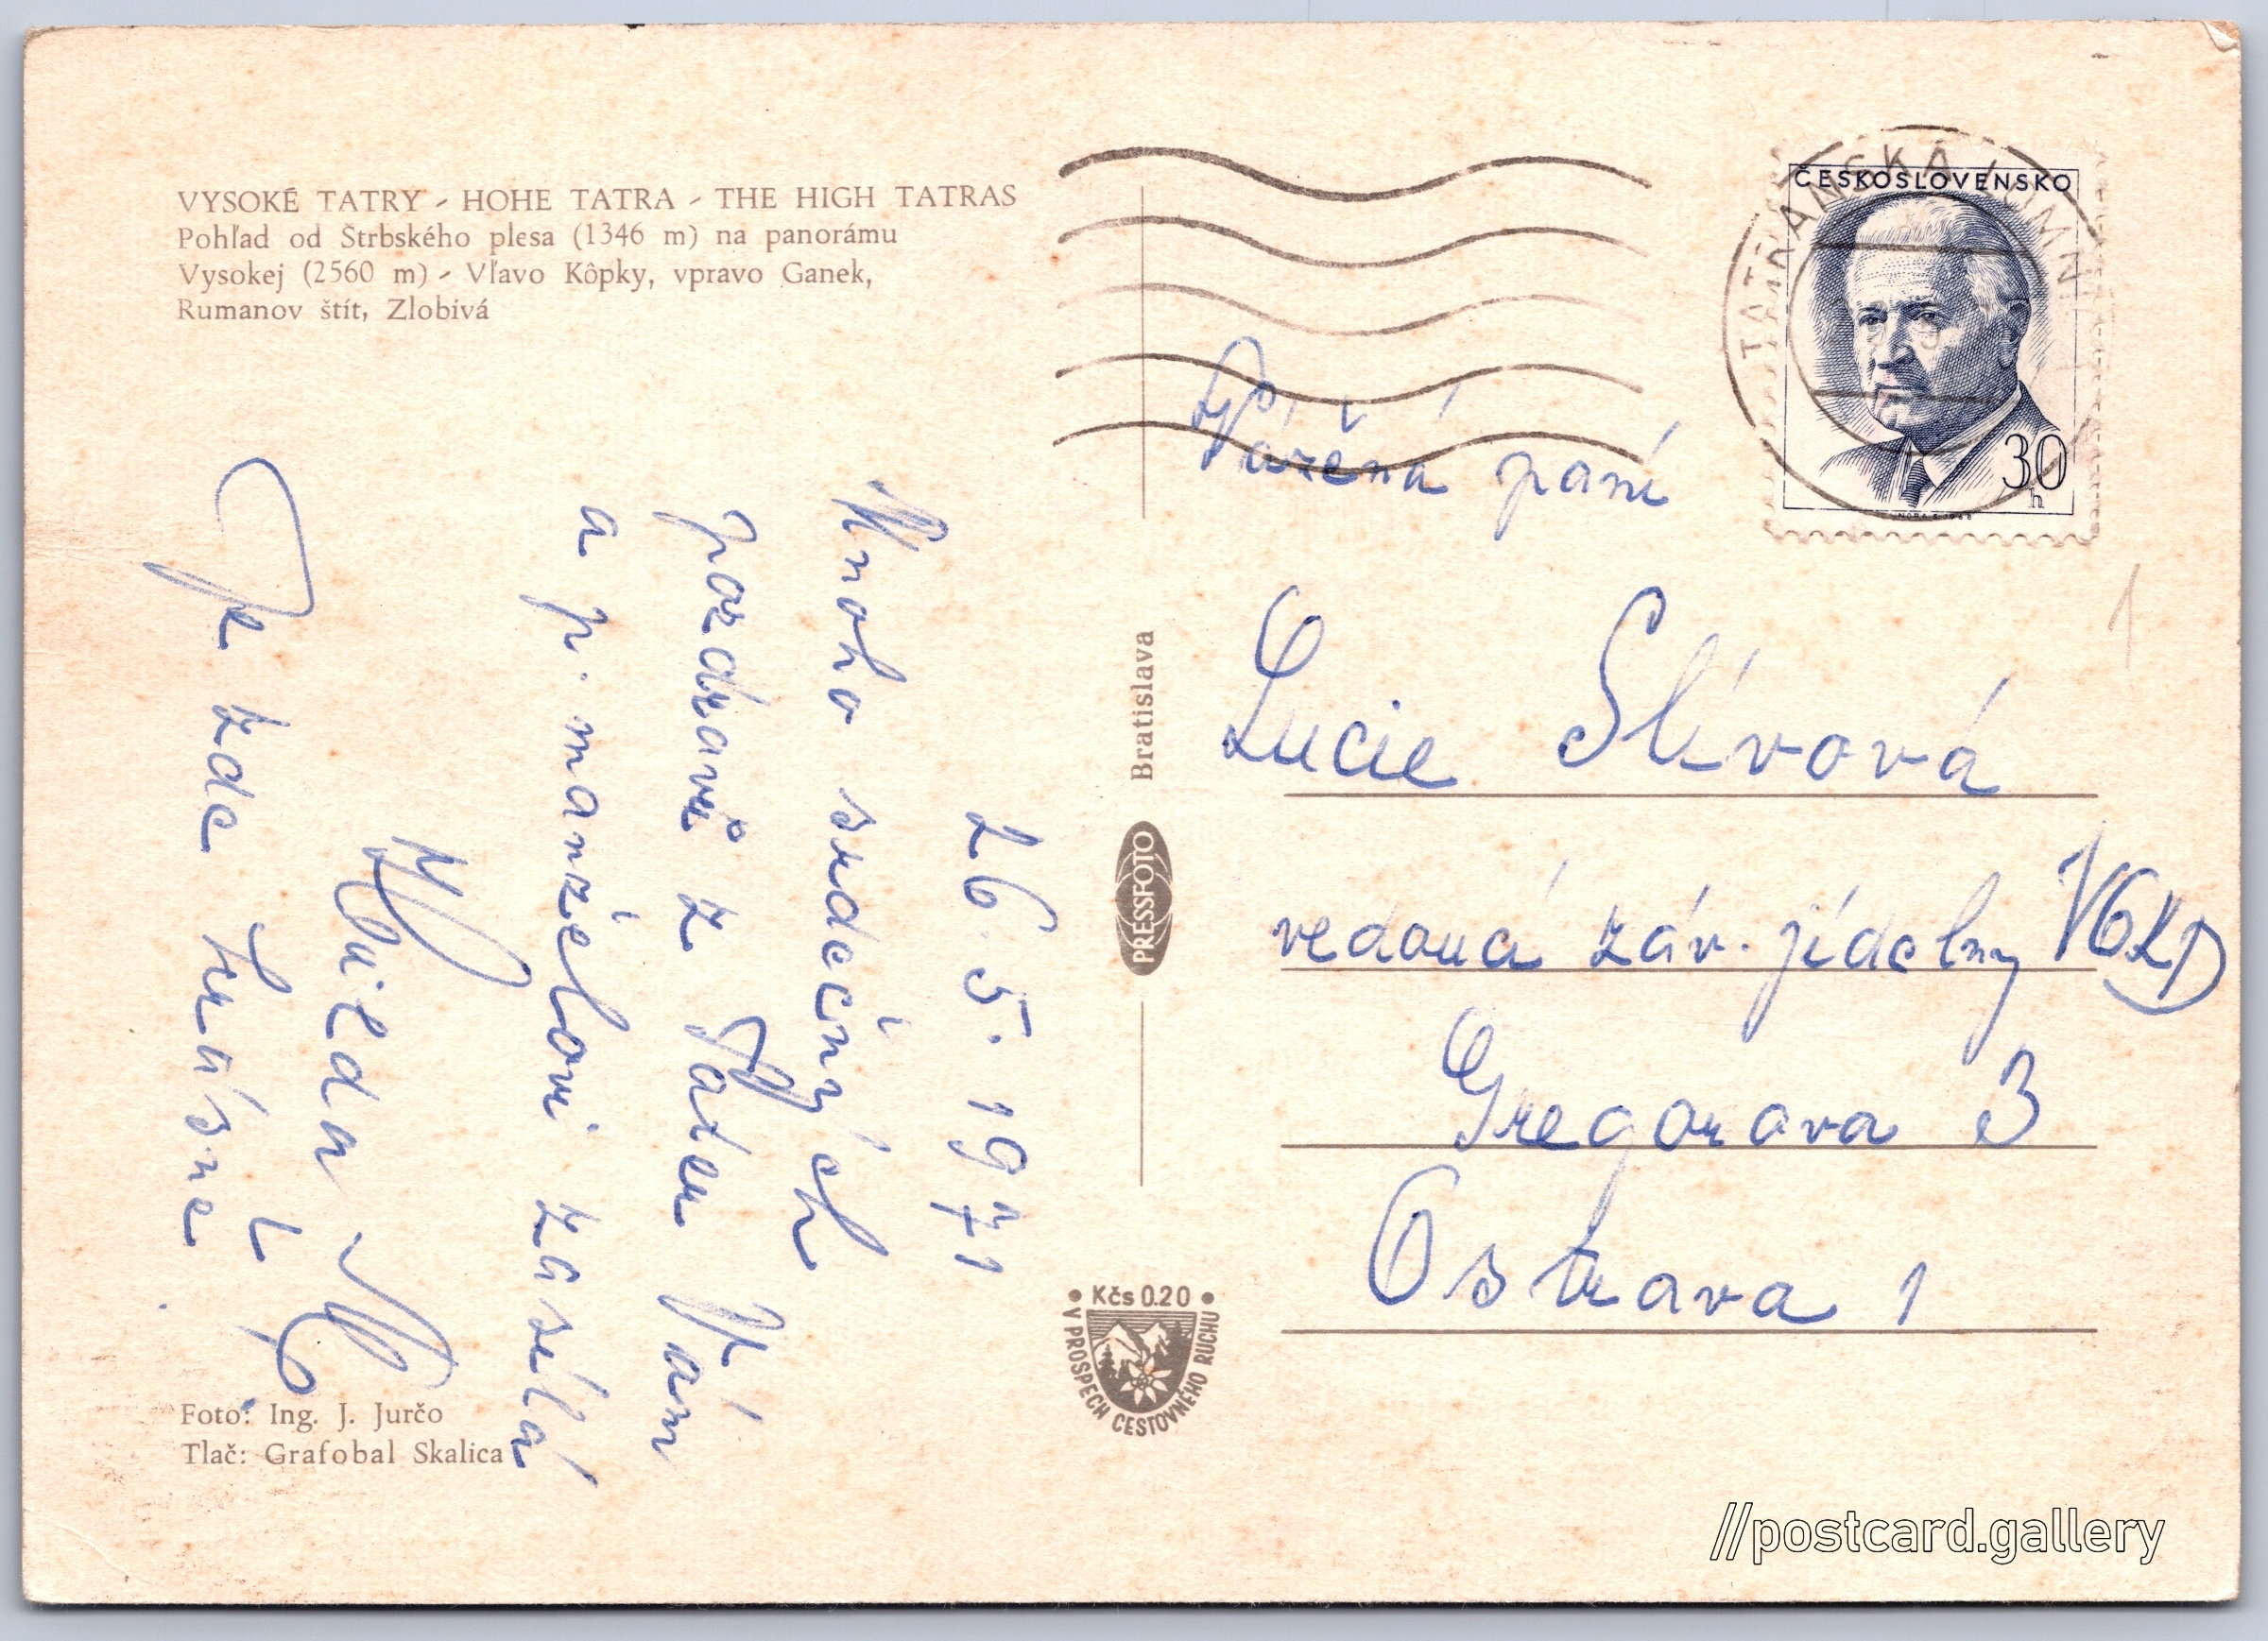 VYSOKÉ TATRY - HOHE TATRA - THE HIGH TATRAS
Pohľad od Štrbského plesa (1346 m) na panorámu
Vysokej (2560 m) - Vľavo Kôpky, vpravo Ganek,
Rumanov štít, Zlobivá
26. 5. 1971
Mnoho srdečných
pozdravů z Tater Vám
a p. manželovi zasílá
Hilda
Je zde krásně
Foto: Ing. J. Jurčo
Tlač: Grafobal Skalica
Bratislava
PRESSFOTO
• Kčs 0.20 •
V PROSPECH CESTOVNÉHO RUCHU
TATRANSKÁ LOMNI
ČESKOSLOVENSKO
30
h
Vážená paní
Lucie Slívová
vedoucí záv. jídelny VOKD
Gregorova 3
Ostrava 1
//postcard.gallery